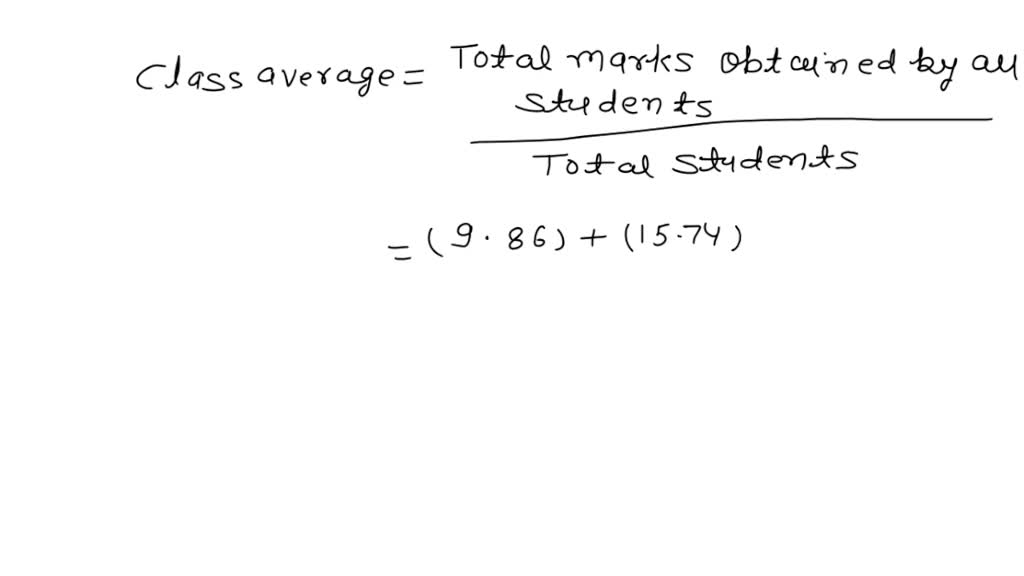 Class average = Total marks obtained by all
students
Total students
= (9.86) + (15.74)